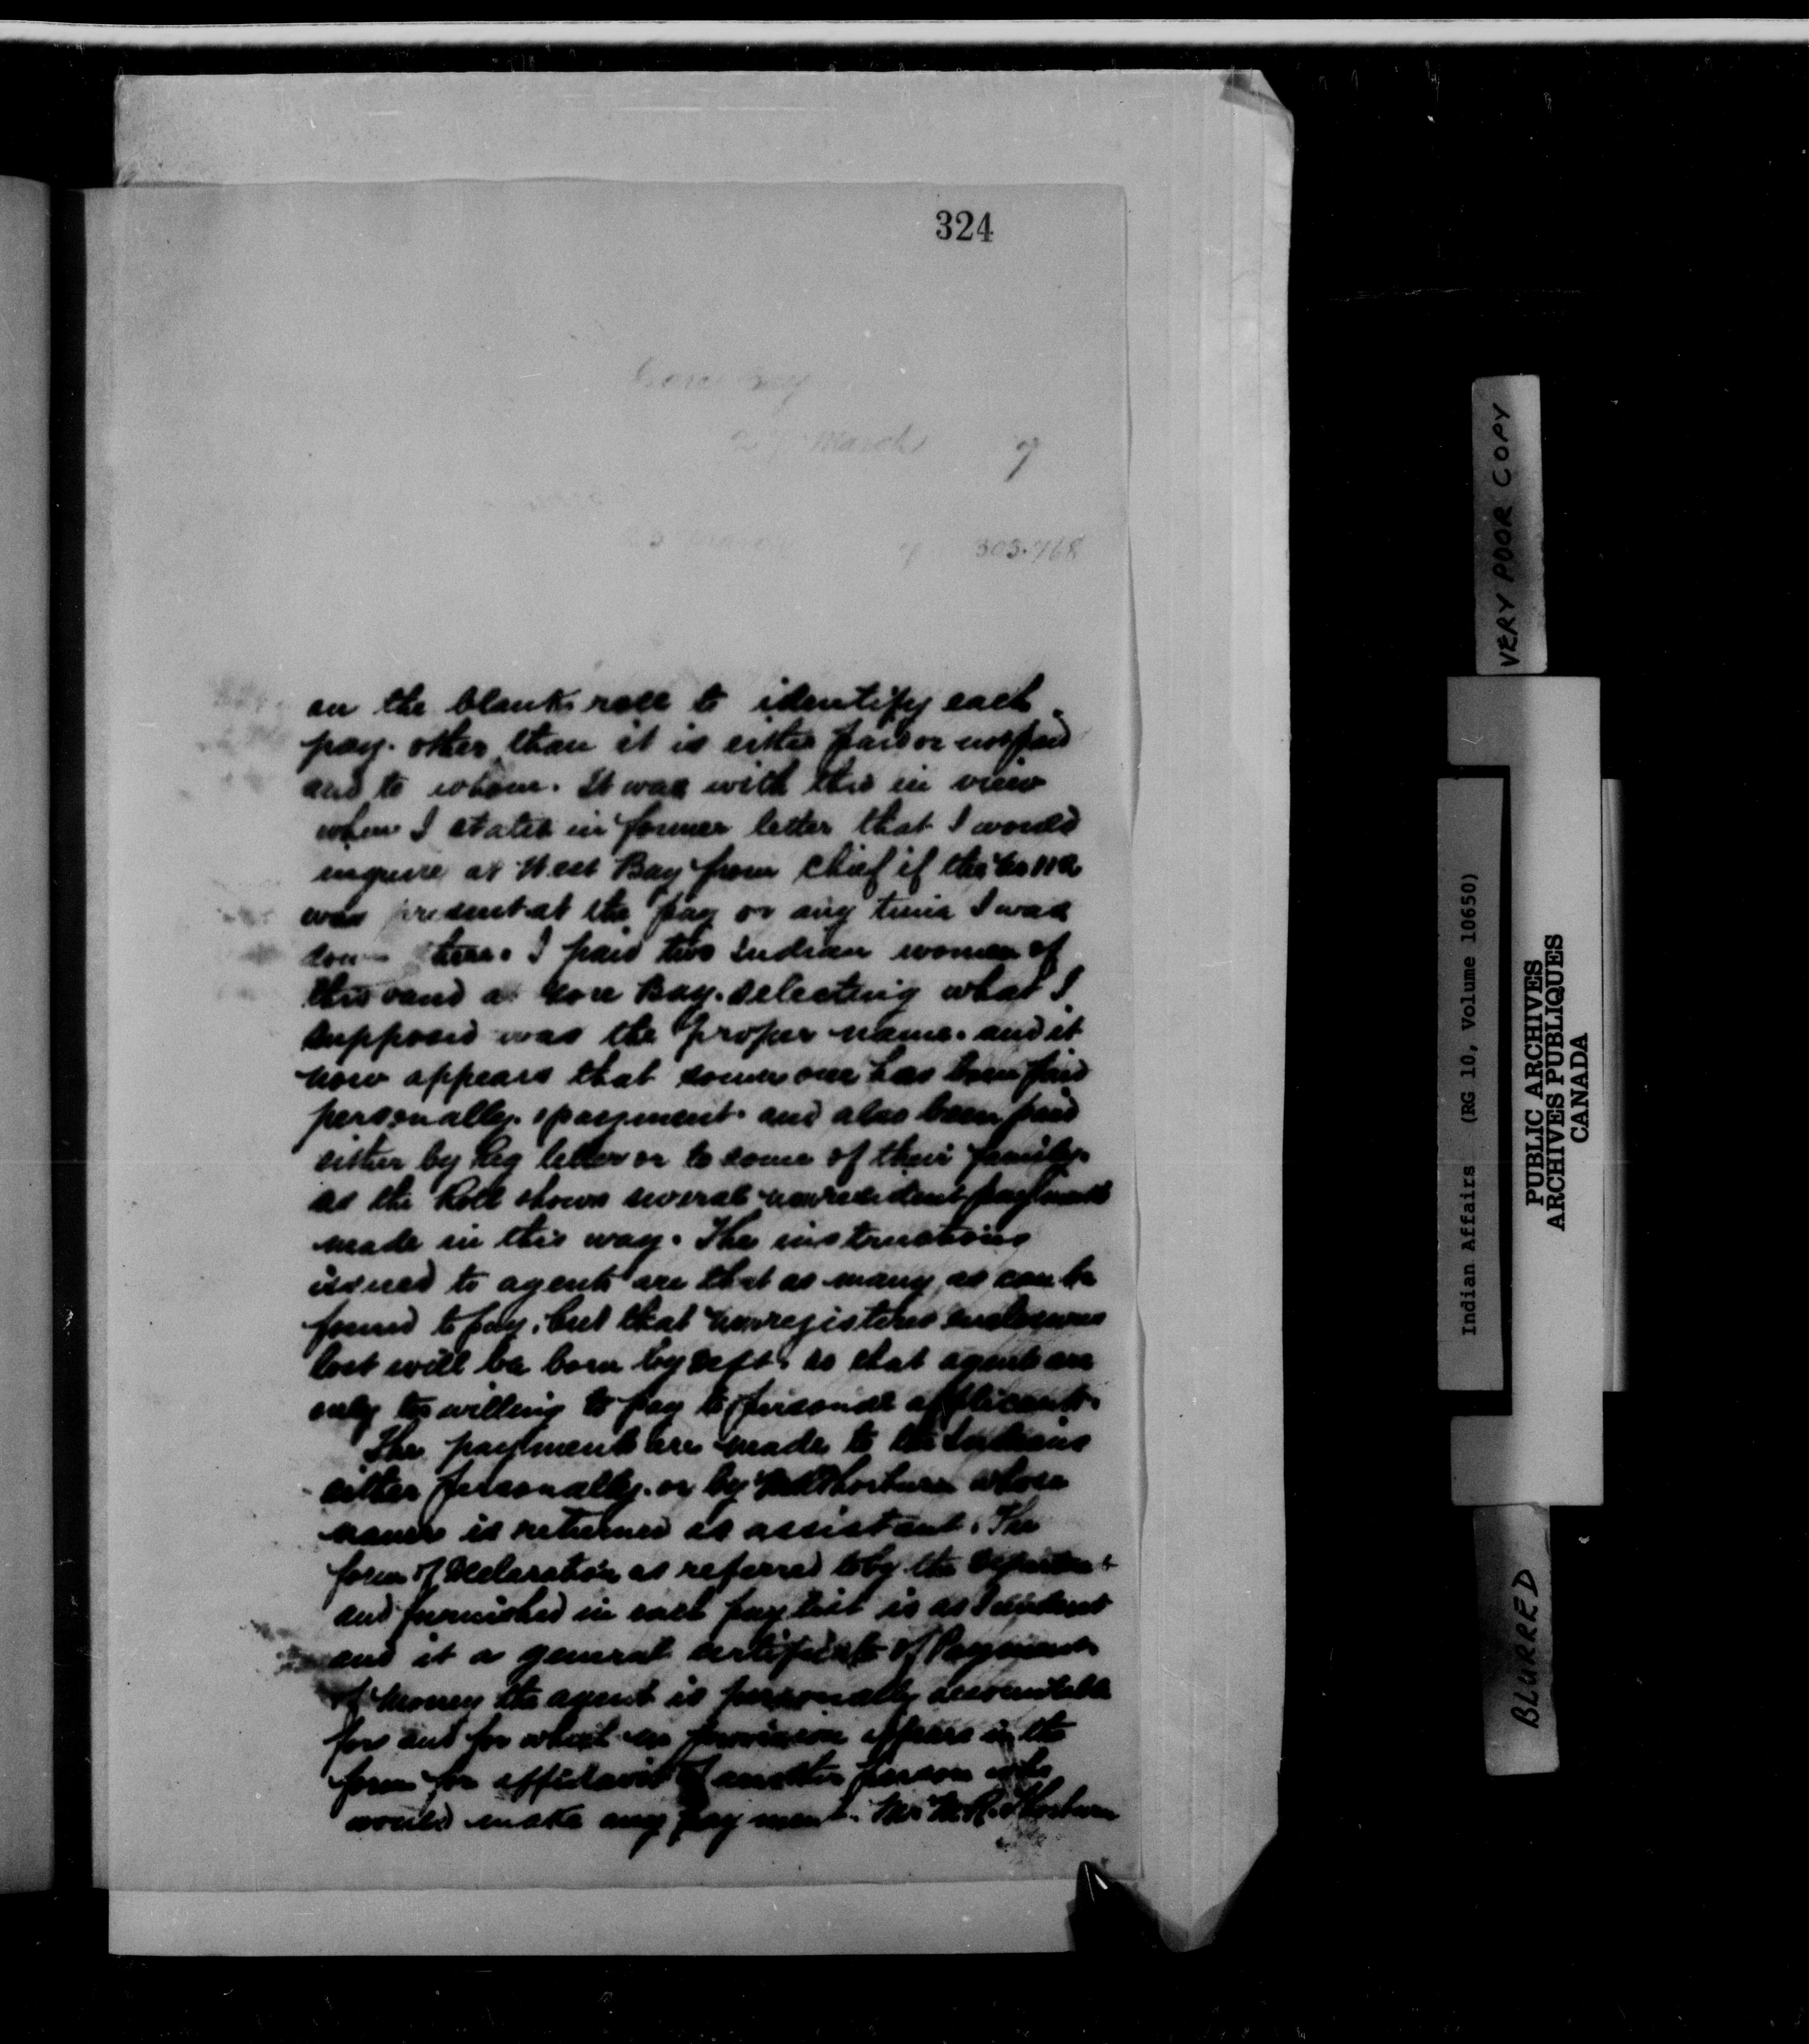 324
Gore Bay
27 March 7
303.768
on the blank roll to identify each
pay. other than it is either paid or not paid
and to whom. It was with this in view
when I stated in former letter that I would
enquire at West Bay from Chief if the
was present at the pay or any time I was
down there. I paid two Indian women of
this band at Gore Bay. selecting what I
supposed was the proper name. and it
now appears that some one has been paid
personally. payment. and also been paid
either by Reg letter or to some of their family.
as the Roll shows several nonresident payments
made in this way. The instructions
issued to agents are that as many as can be
found to pay. but that unregistered enclosures
lost will be born by Dept. so that agents are
only to willing to pay to personal applicants.
The payments are made to the Indians
either personally. or by Thorburn whose
name is returned as assistant. The
form of Declaration as referred to by the Department
and furnished in each pay list is as I understand
and it a general certificate of Payments
of money the agent is personally accountable
for and for which no provision appears in the
form for affidavit of another person who
would make any payment. Mr Thorburn
VERY POOR COPY
Indian Affairs (RG 10, Volume 10650)
PUBLIC ARCHIVES
ARCHIVES PUBLIQUES
CANADA
BLURRED